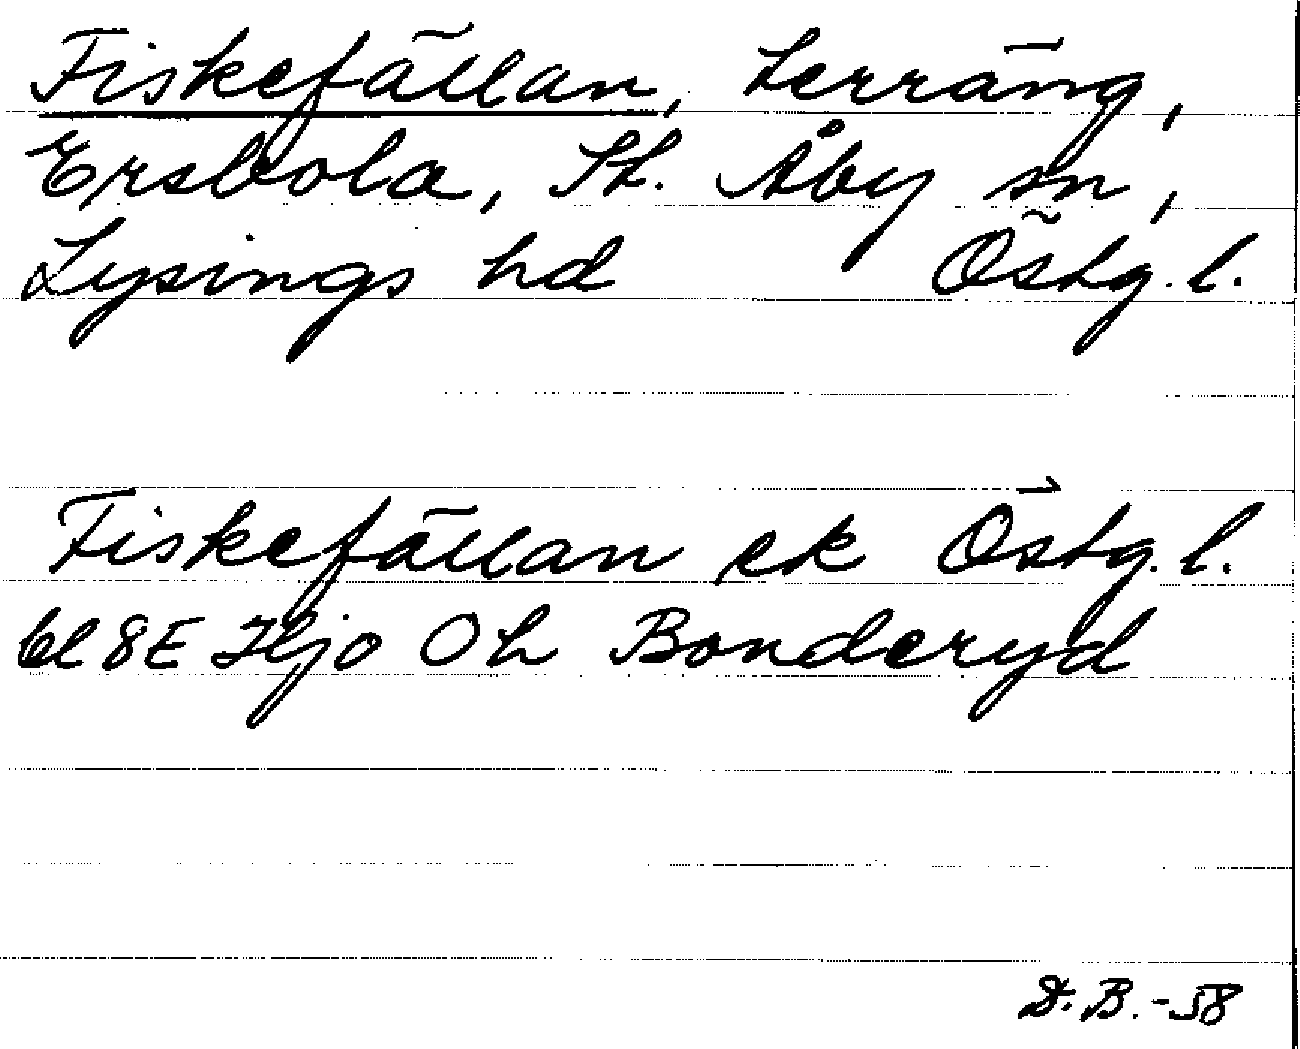 Fiskefällan, Lerräng,
Ersbola, St. Åby sn,
Lysings hd Östg. l.
Fiskefällan ek Östg. l.
bl 8E Hjo Oh Bonderyd
D. B. -58